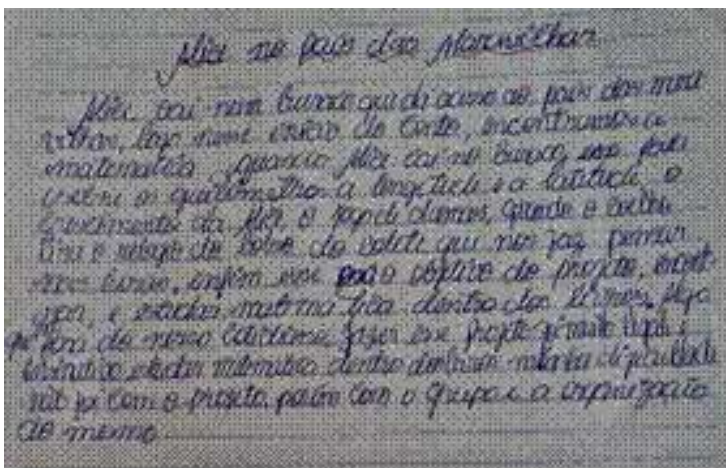 Alice no país das Maravilhas
Alice cai num buraco que dá acesso ao país das mara
vilhas, logo nesse início do conto, encontramos a
matemática, quando Alice cai no buraco, ela
os quilômetros a longitude e a latitude, o
crescimento da Alice, o jogo de damas, quando o coelho
tira o relógio do bolso do colete que nos faz pensar
nas horas, enfim esse era o objetivo do projeto,
e estudar matemática dentro dos livros, algo
de nosso cotidiano fazer esse projeto foi muito legal e
estudar matemática dentro dos livros minha dificuldade
não foi com o projeto, porém com o grupo e a organização
do mesmo